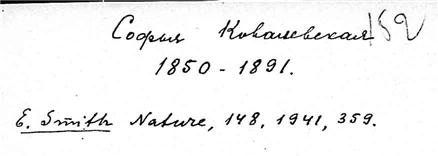 Софья Ковалевская 152
1850 - 1891.
E. Smith Nature, 148, 1941, 359.